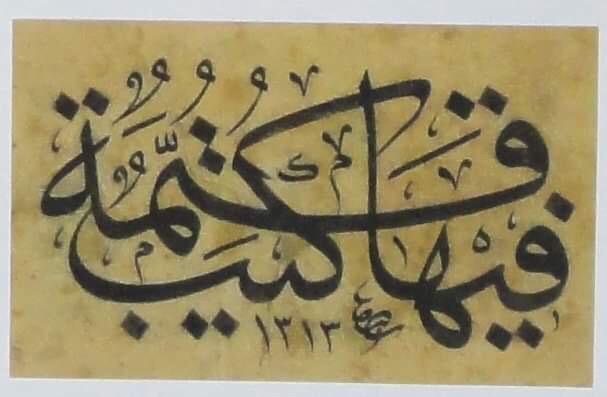 فِيهَا كُتُبٌ قَيِّمَةٌ
١٣١٣